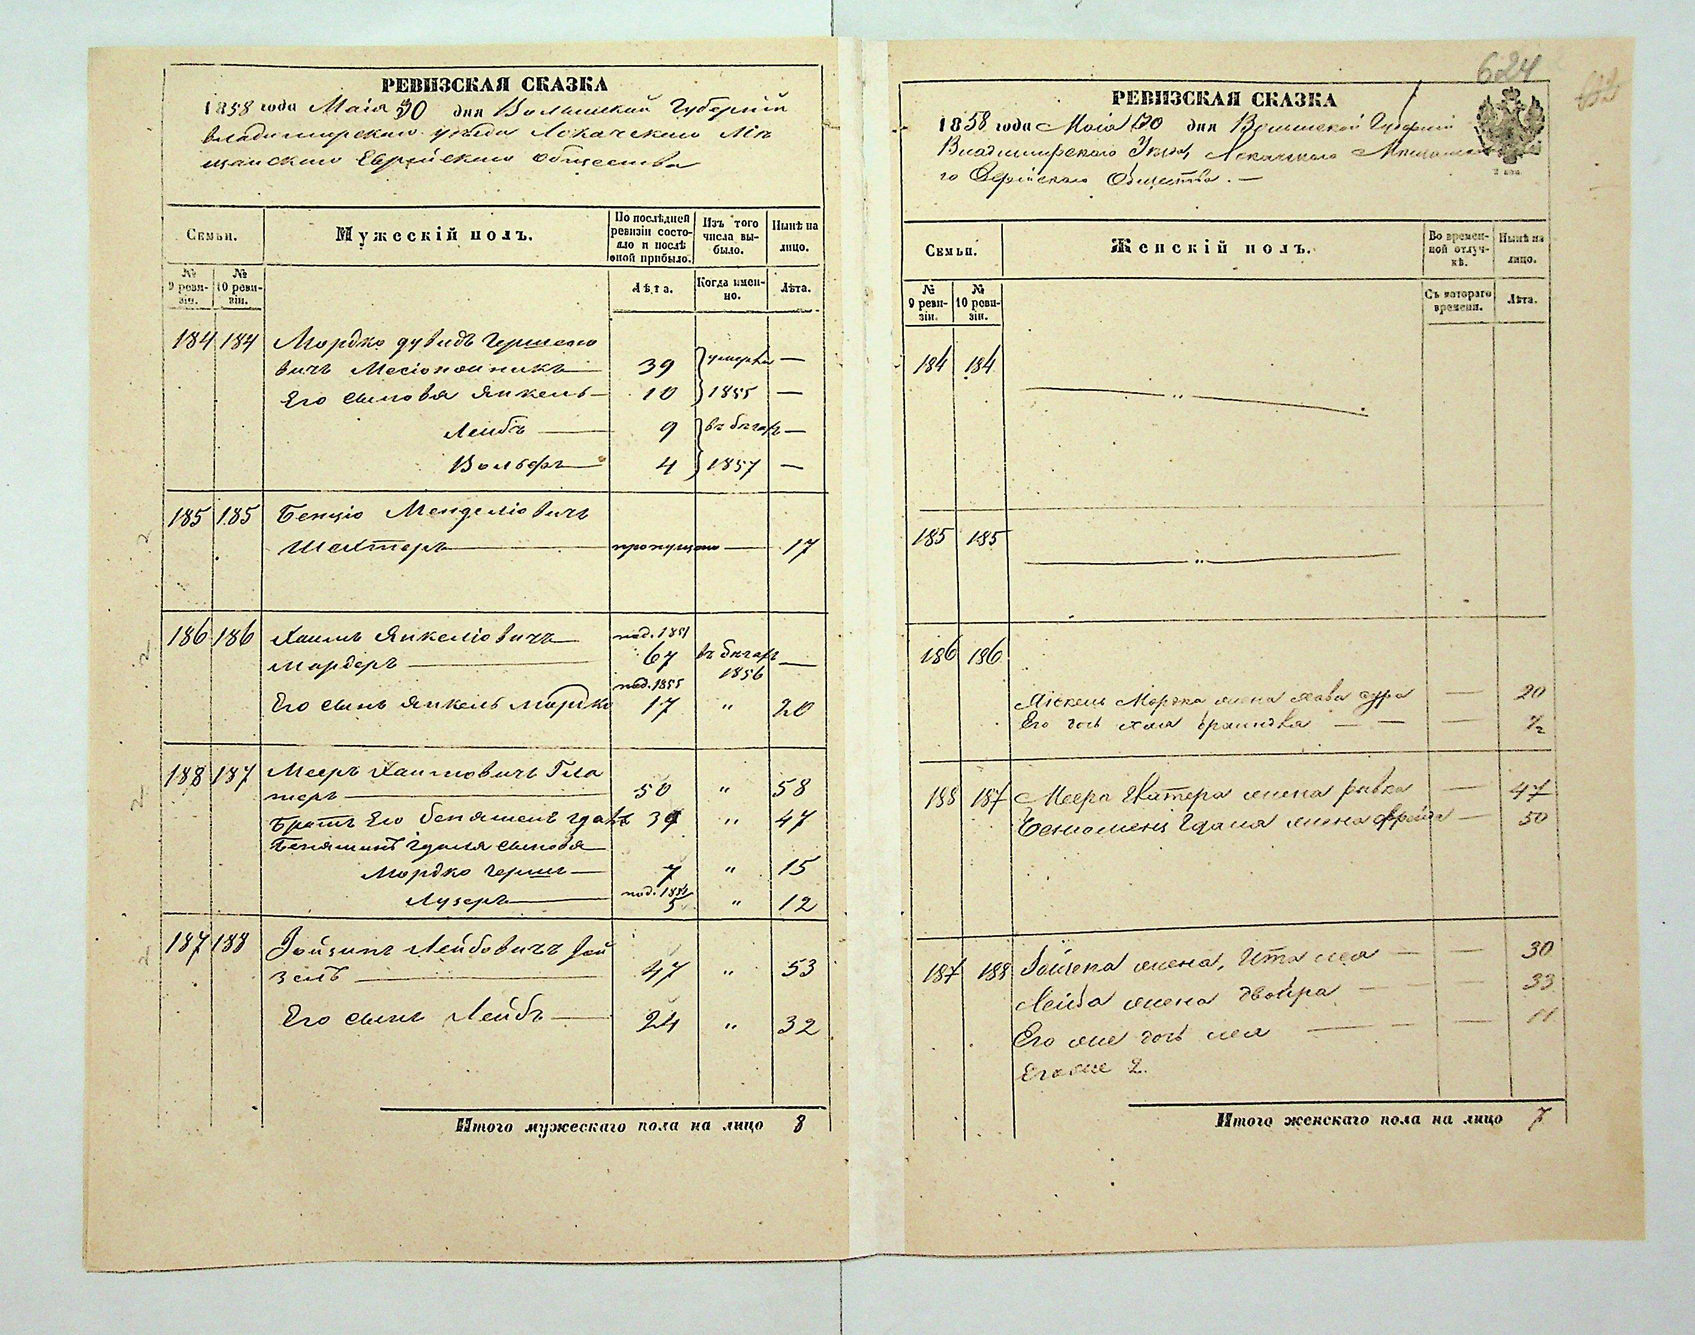 РЕВИЗСКАЯ СКАЗКА
1858 года Маія 30 дня Волынской Губерніи
Владимирскаго уѣзда Локачскаго Мѣ
щанскаго Еврейскаго общества
Семьи.
Мужескій полъ.
По послѣдней ревизіи состояло и послѣ оной прибыло.
Изъ того числа выбыло.
Нынѣ на лицо.
№ 9 ревизіи.
№ 10 ревизіи.
Лѣта.
Когда именно.
Лѣта.
184 184 Мордко дувидъ Гершко
вичъ 39 умерли —
Его сыновья Янкель — 10 1855 —
Лейбъ — 9 въ бѣгахъ —
Вольфъ — 4 1857 —
185 185 Бенціо Менделіовичъ
Шехтеръ — пропущено — 17
186 186 Хаимъ Янкеліовичъ — 1851
Мардеръ — 67 въ бѣгахъ 1856 —
1855
Его сынъ Янкель Мордко 17 " 20
188 187 Мееръ Хаимовичъ
теръ — 50 " 58
Братъ Его Беняменъ 39 " 47
сыновья
Мордко Гершъ — 7 " 15
Лузеръ — 5 " 12
187 188 Лейбовичъ
зенъ — 47 " 53
Его сынъ Лейбъ — 24 " 32
Итого мужескаго пола на лицо 8
624
РЕВИЗСКАЯ СКАЗКА
1858 года Маія 30 дня Волынской Губерніи
Владимирскаго Уѣзда, Локачскаго
го Еврейскаго Общества. —
Семьи.
Женскій полъ.
Во временной отлучкѣ.
Нынѣ на лицо.
№ 9 ревизіи.
№ 10 ревизіи.
Съ котораго времени.
Лѣта.
184 184 — " —
185 185 — " —
186 186
Янкель Мордка жена хава сура — 20
Его дочь хая — — — ½
188 187 Меера жена ривка — 47
жена фрейда — 50
187 188 жена, Ита лея — — 30
Лейба жена двойра — — — 33
Его же дочь лея — — — 11
Его же 2.
Итого женскаго пола на лицо 7